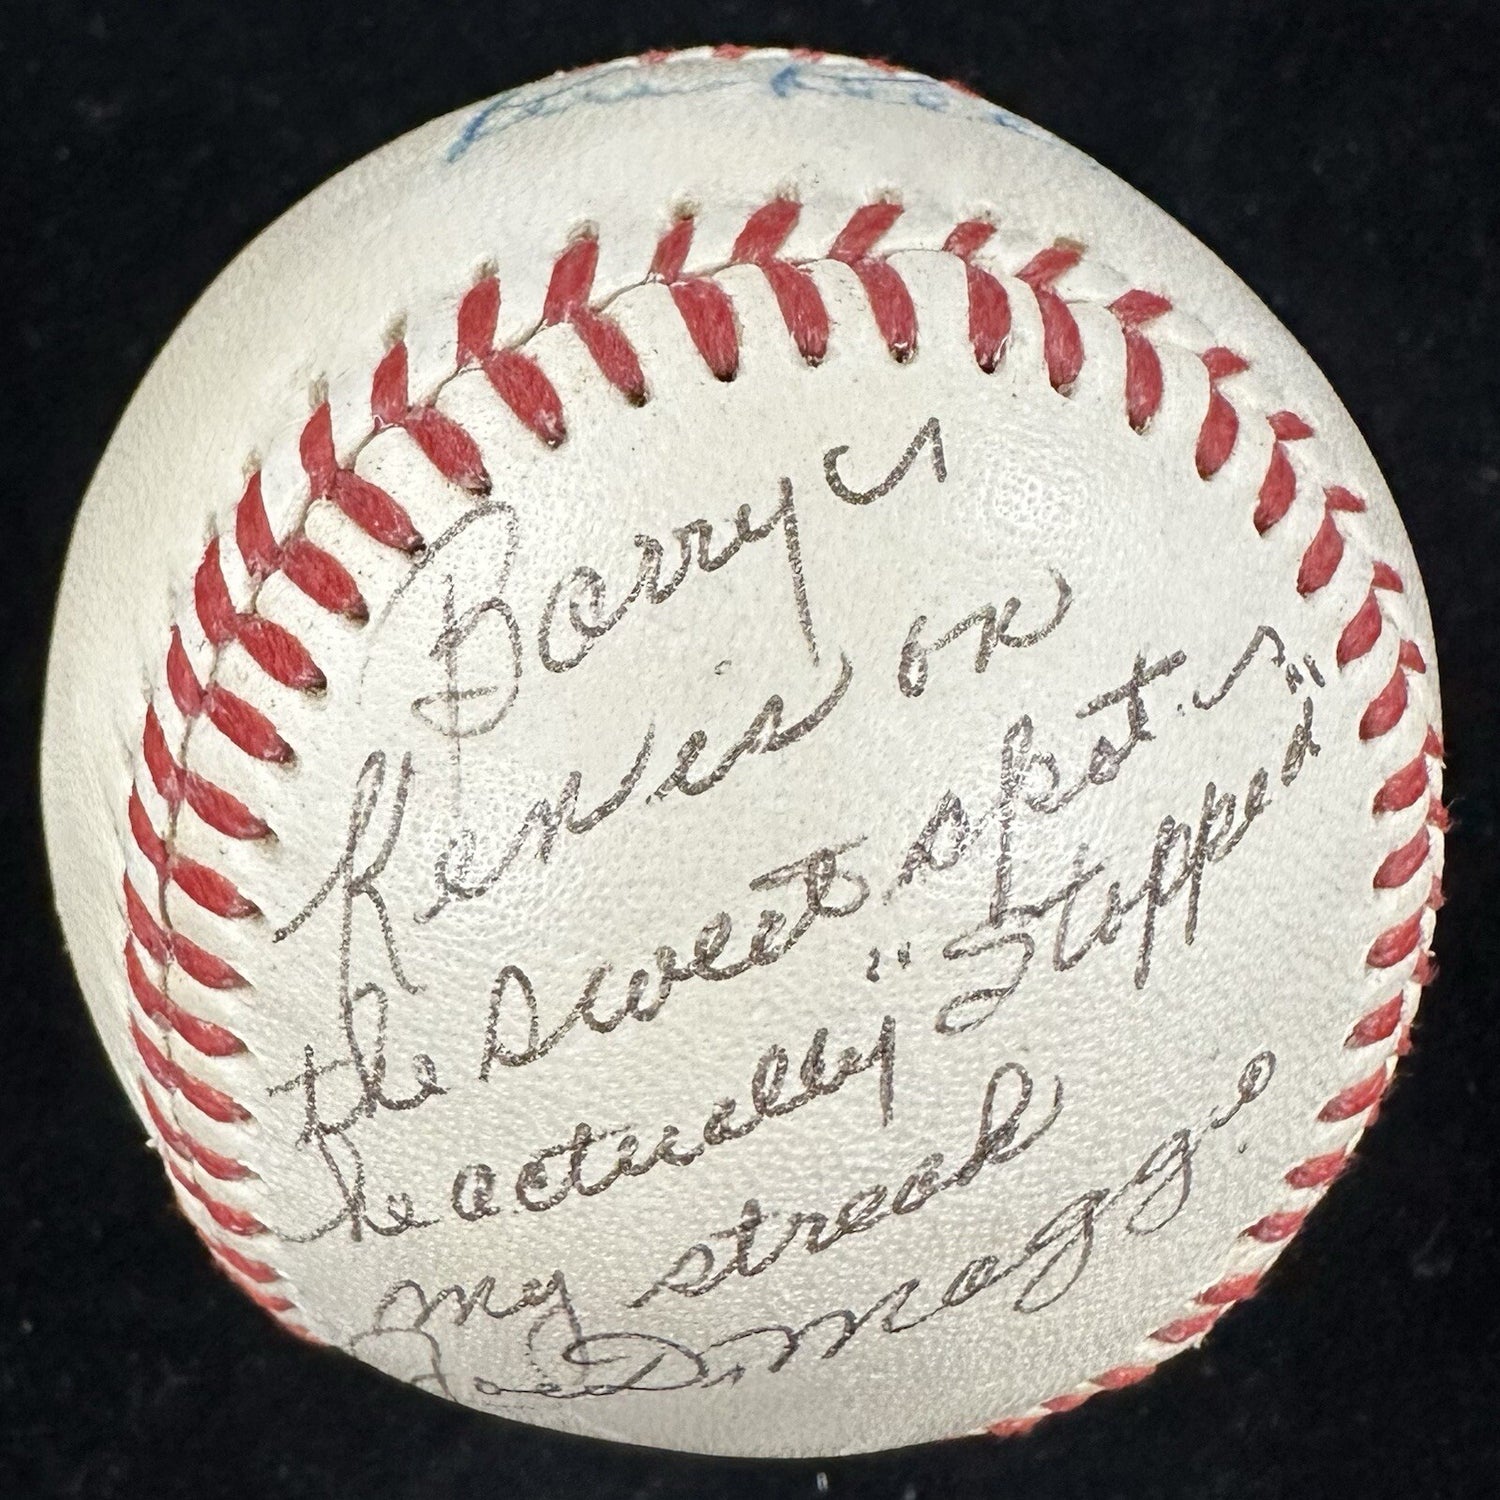 Barry
Ken is on
the sweet spot.
He actually "Stopped"
my streak
Joe DiMaggio